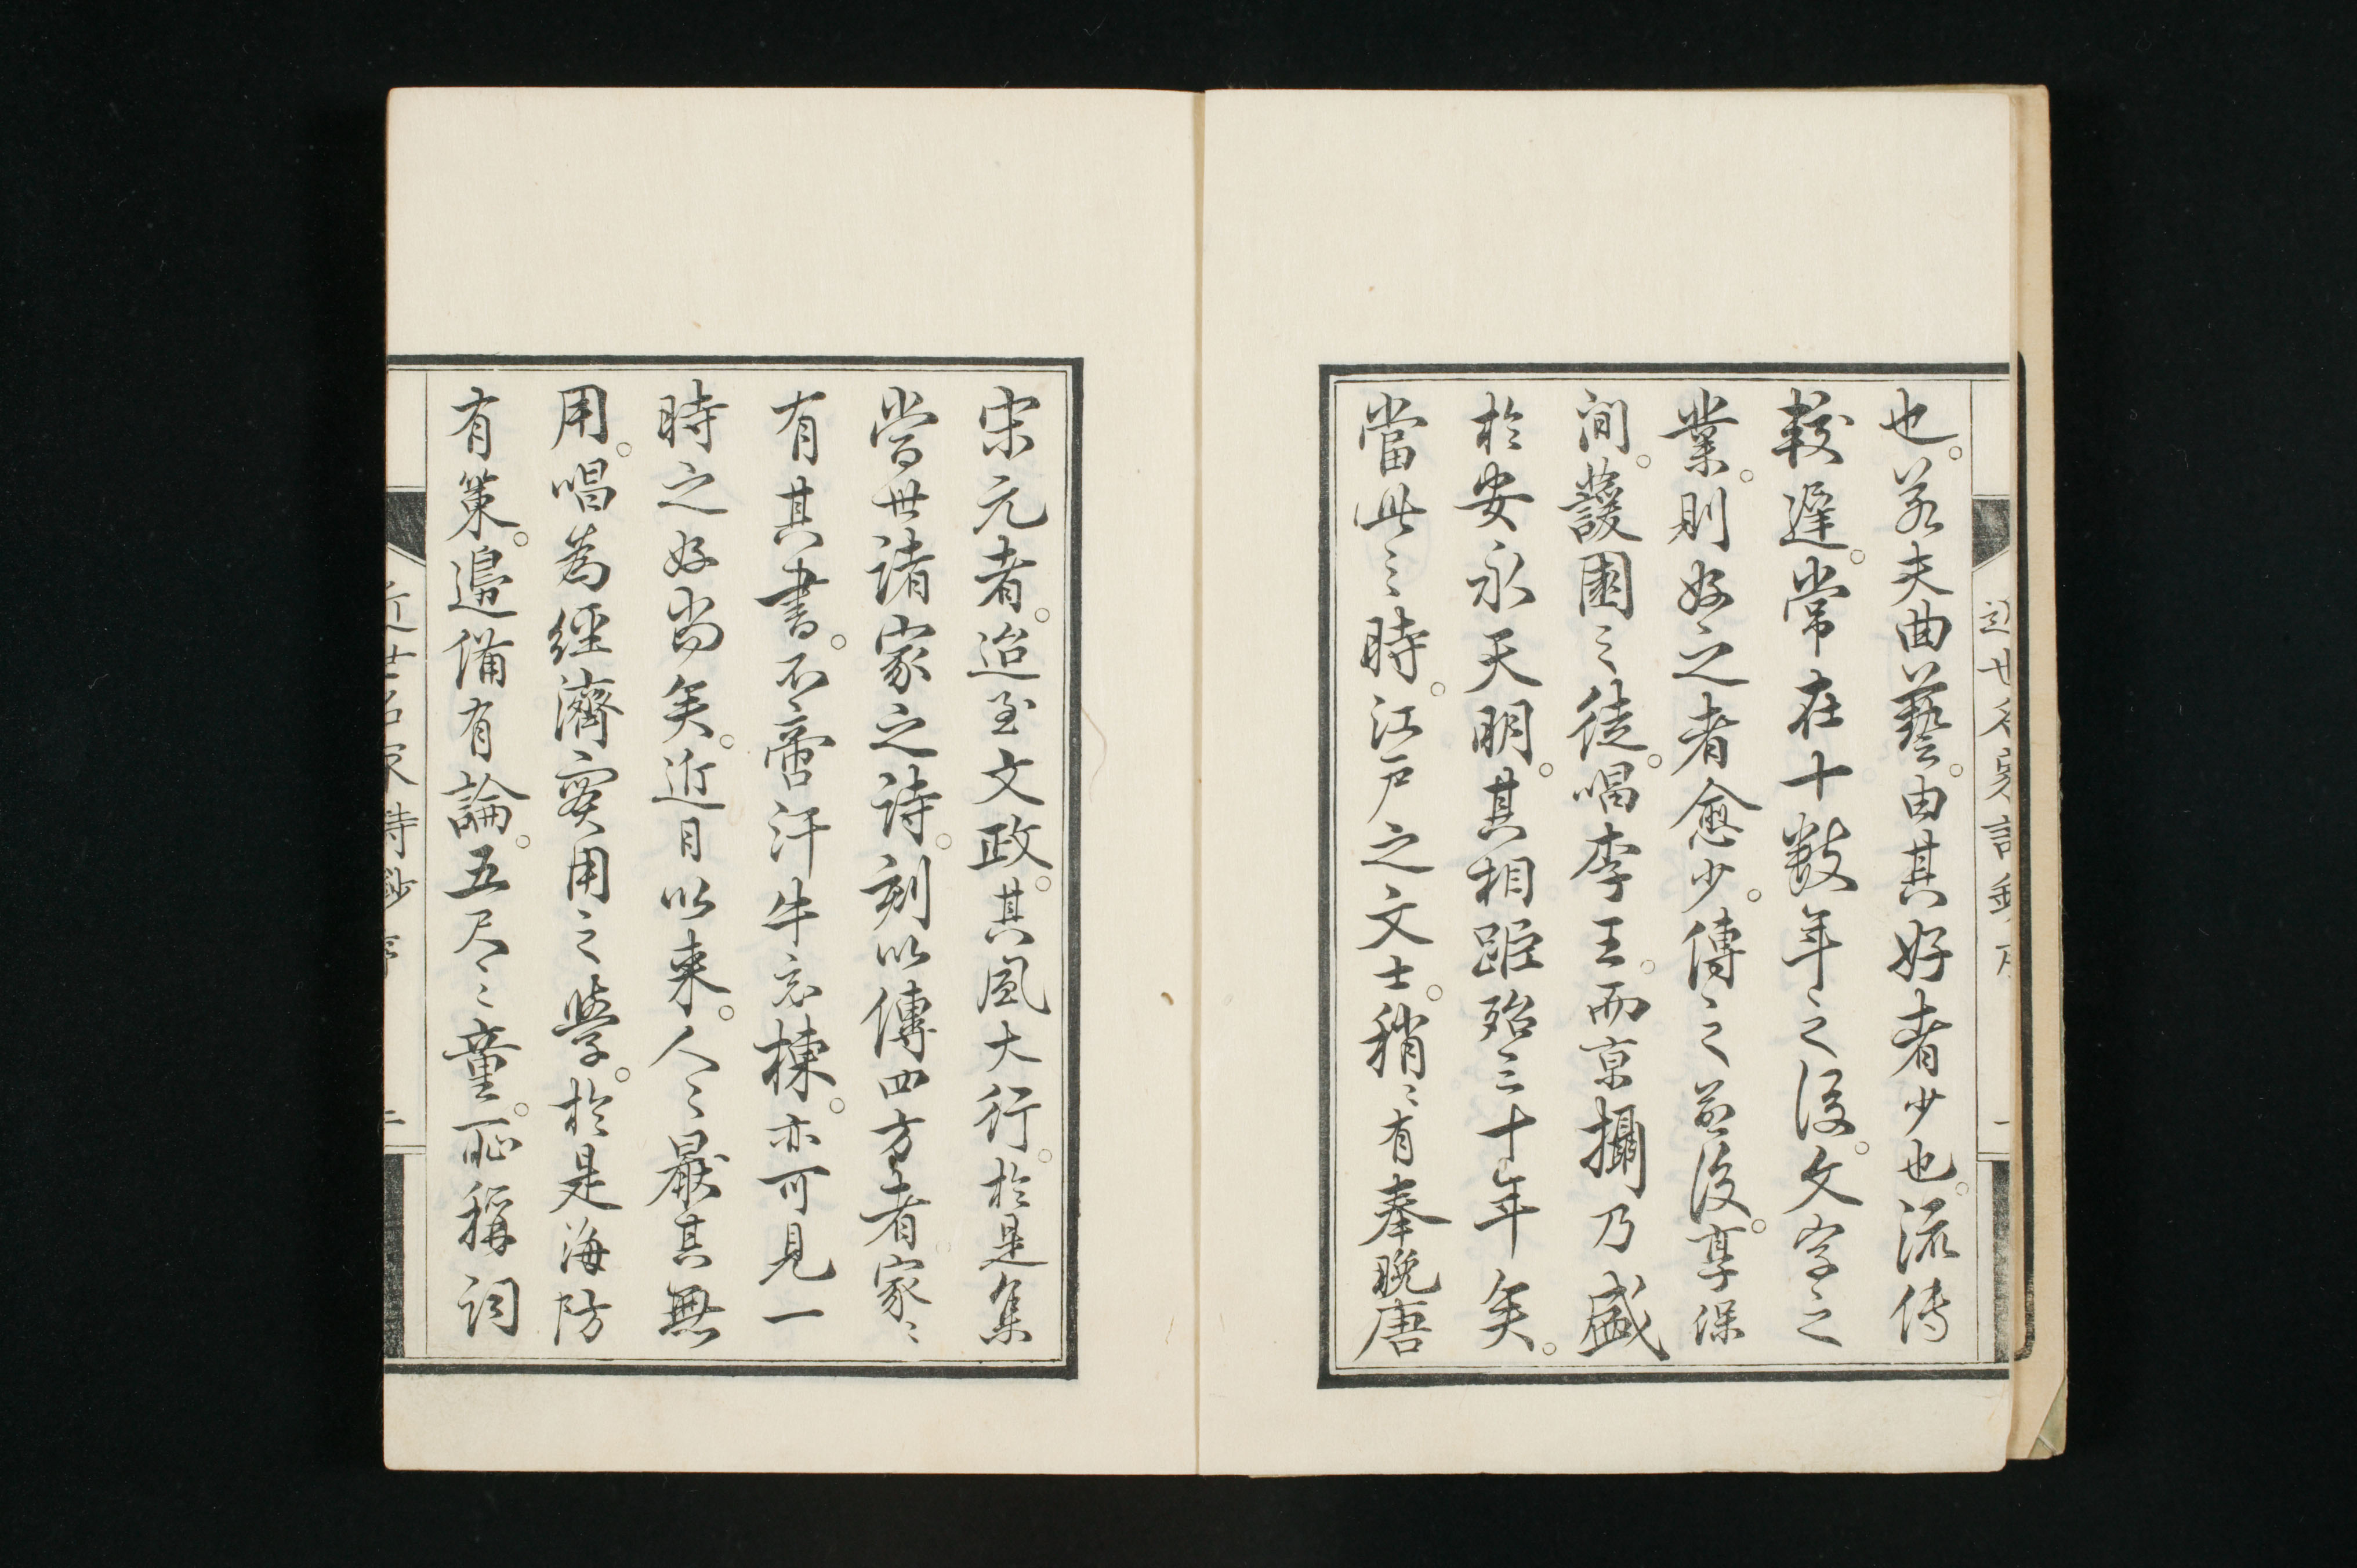 也。若夫曲藝。由其好者少也。流傳
較遲。常在十數年之後。文字之
業。則好之者愈少。傳之益後。享保
間。蘐園之徒。唱李王。而京攝乃盛
於安永天明。其相距殆三十年矣。
當此之時。江戶之文士。稍〻有奉晚唐
宋元者。迨至文政。其風大行。於是集
當世諸家之詩。刻以傳四方者家〻
有其書。不啻汗牛充棟。亦可見一
時之好尚矣。近日以来。人〻厭其無
用。唱為經濟實用之學。於是海防
有策。邊備有論。五尺之童。恥稱詞
近世名家詩鈔 序 一
近世名家詩鈔 序 二